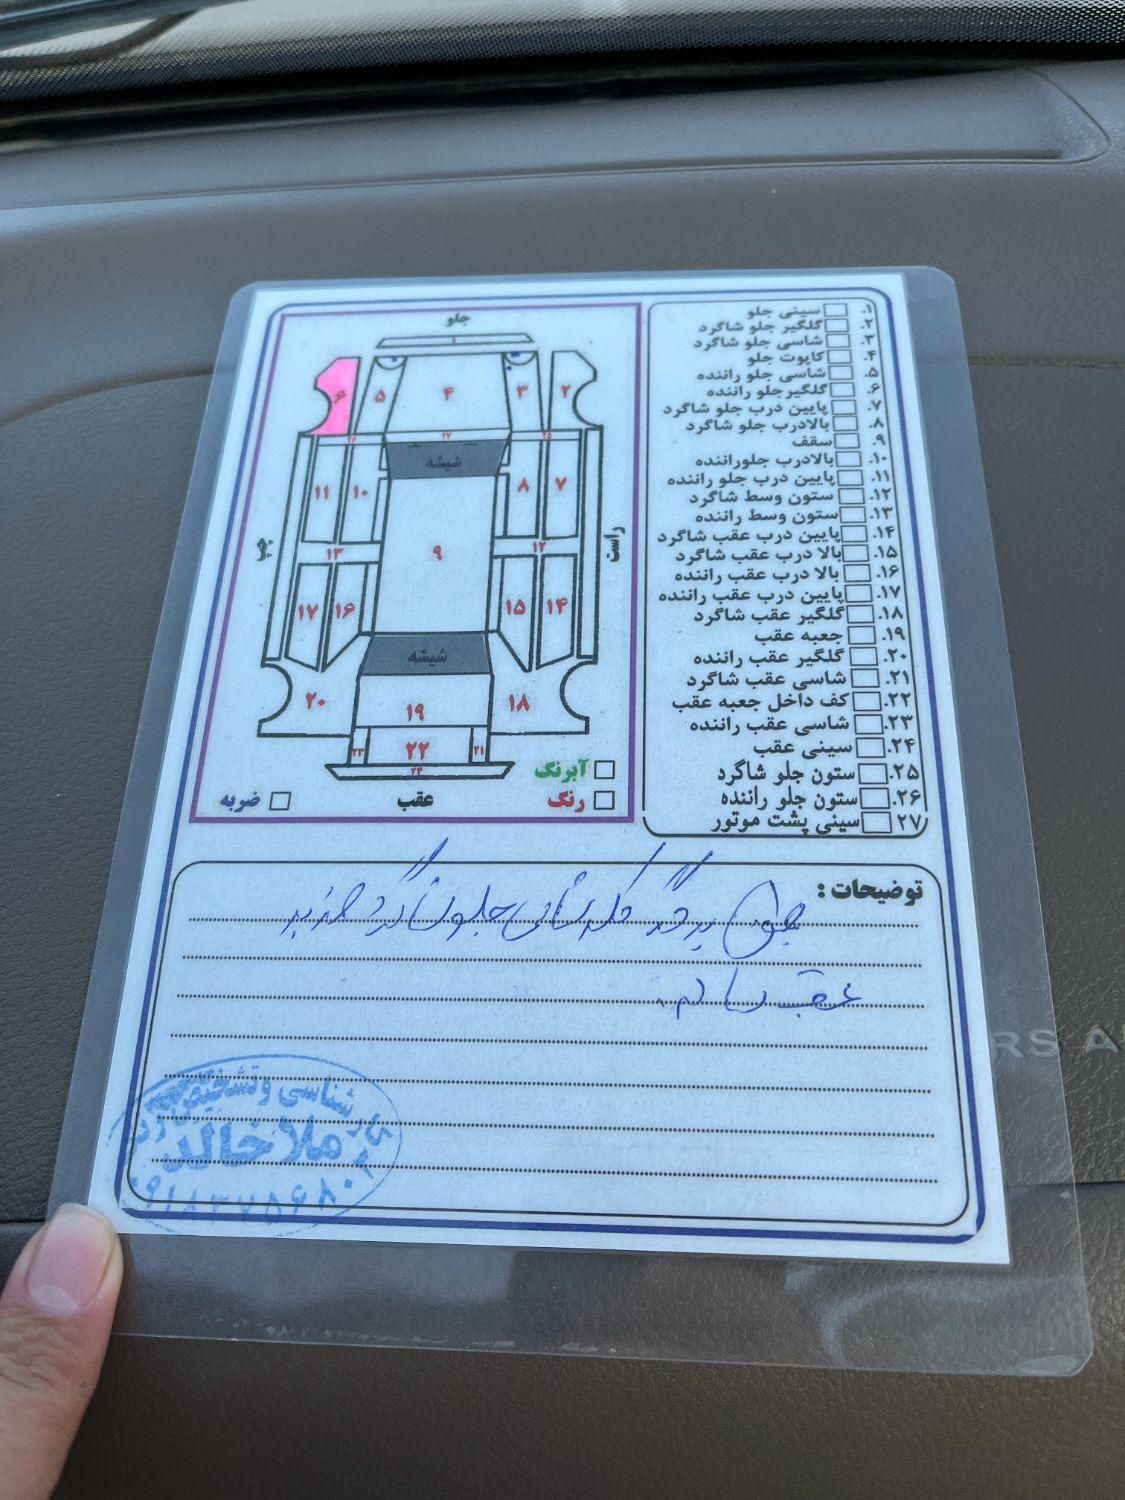 جلو
۱
۶
۵
۴
۳
۲
۲۶
۲۷
۲۵
شیشه
۱۱
۱۰
۸
۷
چپ
۱۳
۹
۱۲
راست
۱۷
۱۶
۱۵
۱۴
شیشه
۲۰
۱۹
۱۸
۲۳
۲۲
۲۱
۲۴
آبرنگ
رنگ
عقب
ضربه
۱. سینی جلو
۲. گلگیر جلو شاگرد
۳. شاسی جلو شاگرد
۴. کاپوت جلو
۵. شاسی جلو راننده
۶. گلگیرجلو راننده
۷. پایین درب جلو شاگرد
۸. بالادرب جلو شاگرد
۹. سقف
۱۰. بالادرب جلوراننده
۱۱. پایین درب جلو راننده
۱۲. ستون وسط شاگرد
۱۳. ستون وسط راننده
۱۴. پایین درب عقب شاگرد
۱۵. بالا درب عقب شاگرد
۱۶. بالا درب عقب راننده
۱۷. پایین درب عقب راننده
۱۸. گلگیر عقب شاگرد
۱۹. جعبه عقب
۲۰. گلگیر عقب راننده
۲۱. شاسی عقب شاگرد
۲۲. کف داخل جعبه عقب
۲۳. شاسی عقب راننده
۲۴. سینی عقب
۲۵. ستون جلو شاگرد
۲۶. ستون جلو راننده
۲۷. سینی پشت موتور
توضیحات :
جلو شاگرد
عقب سالم
کارشناسی و تشخیص
ملا خالد
RS A